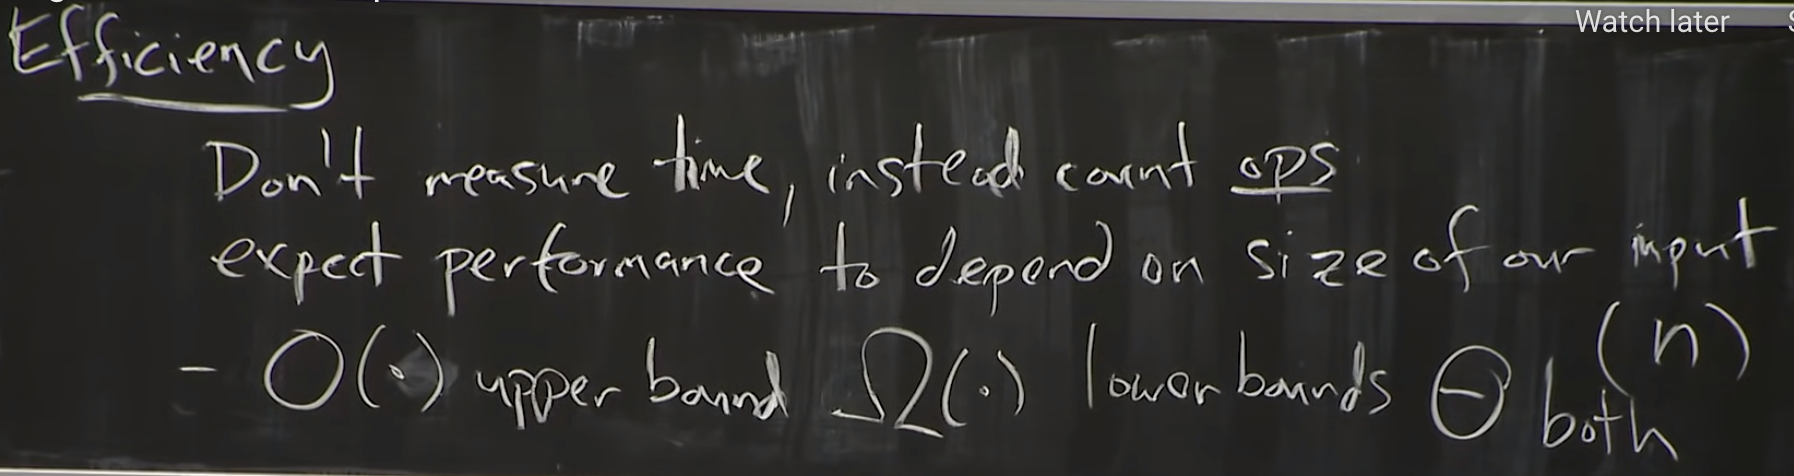 Watch later
Efficiency
Don't measure time, instead count ops
expect performance to depend on size of our input
(n)
- O(·) upper bound Ω(·) lower bounds Θ both